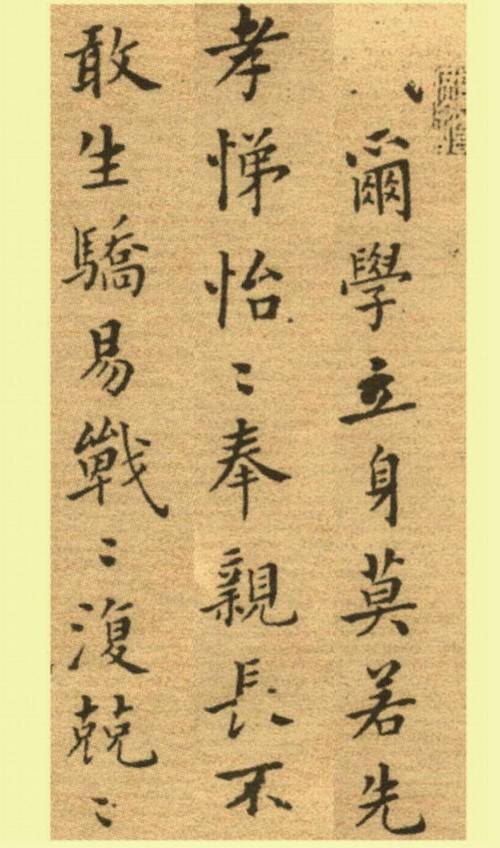 爾學立身莫若先
孝悌怡〻奉親長不
敢生驕易戰〻復兢〻